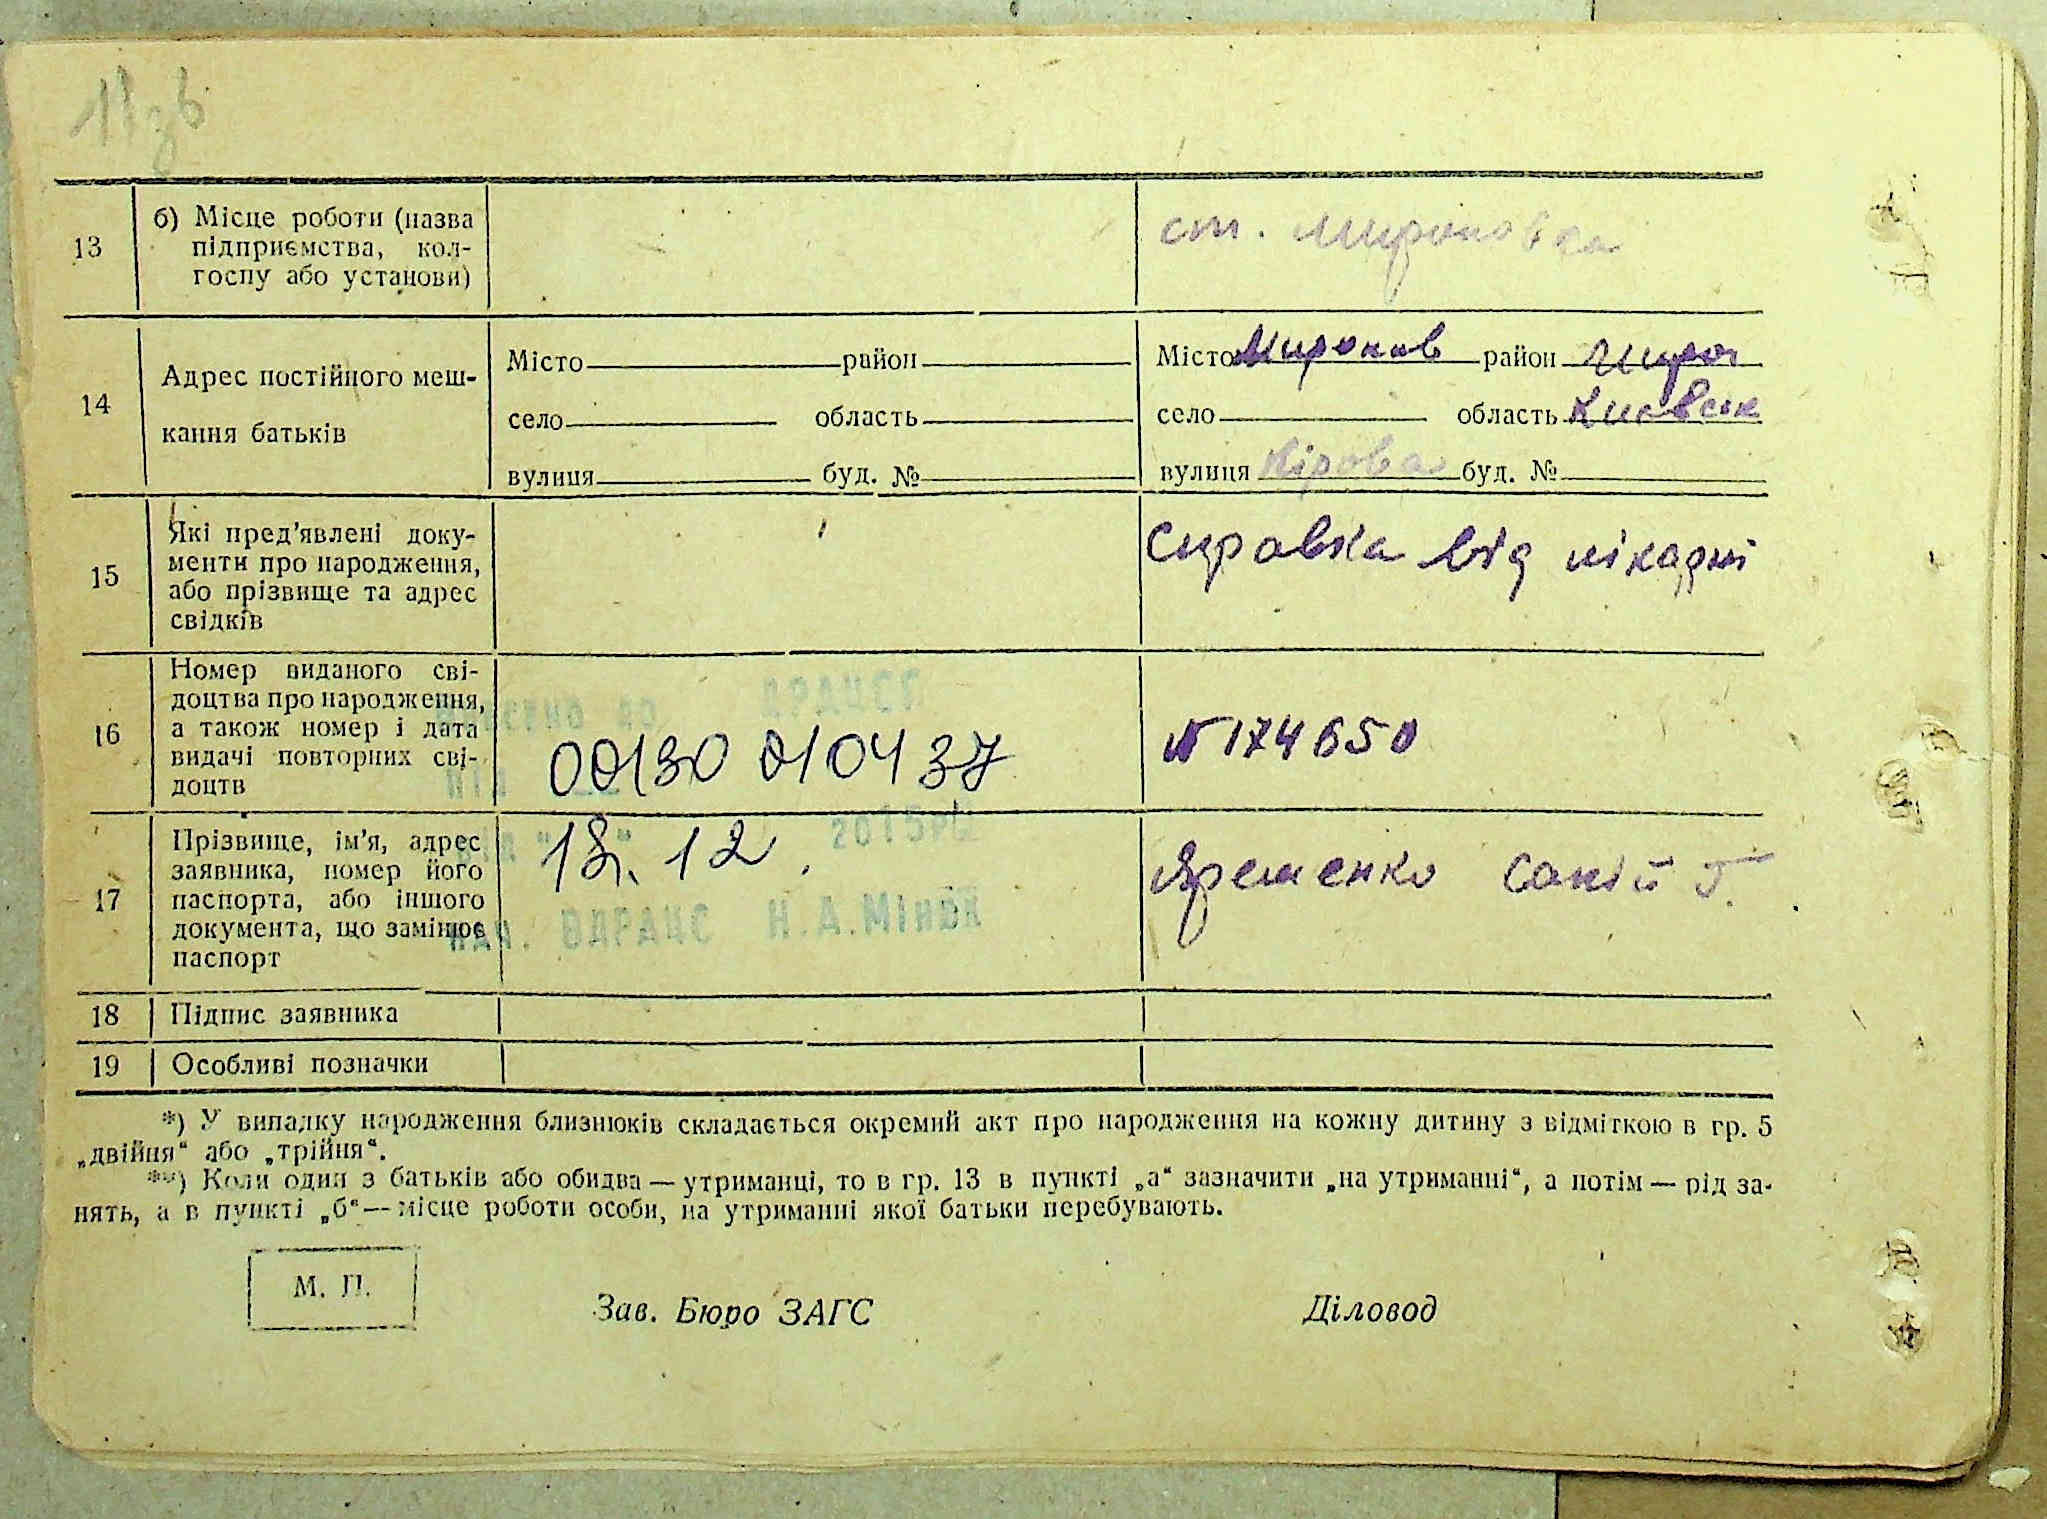 11 зв
13
б) Місце роботи (назва
підприємства, кол-
госпу або установи)
ст. Мироновка
14
Адрес постійного меш-
кання батьків
Місто район
село область
вулиця буд. №
Місто Миронів район Мирон
село область Киівськ
вулиця Кірова буд. №
15
Які пред'явлені доку-
менти про народження,
або прізвище та адрес
свідків
Справка від лікарні
16
Номер виданого сві-
доцтва про народження,
а також номер і дата
видачі повторних сві-
доцтв
ДРАЦСГ
00130 010437
№ 174650
17
Прізвище, ім'я, адрес
заявника, номер його
паспорта, або іншого
документа, що замінює
паспорт
від " " 2015р.
18. 12.
нач. ВДРАЦС Н.А.Мінок
Яременко
18
Підпис заявника
19
Особливі позначки
*) У випадку народження близнюків складається окремий акт про народження на кожну дитину з відміткою в гр. 5
„двійня“ або „трійня“.
**) Коли один з батьків або обидва — утриманці, то в гр. 13 в пункті „а“ зазначити „на утриманні“, а потім — рід за-
нять, а в пункті „б“ — місце роботи особи, на утриманні якої батьки перебувають.
М. П.
Зав. Бюро ЗАГС
Діловод